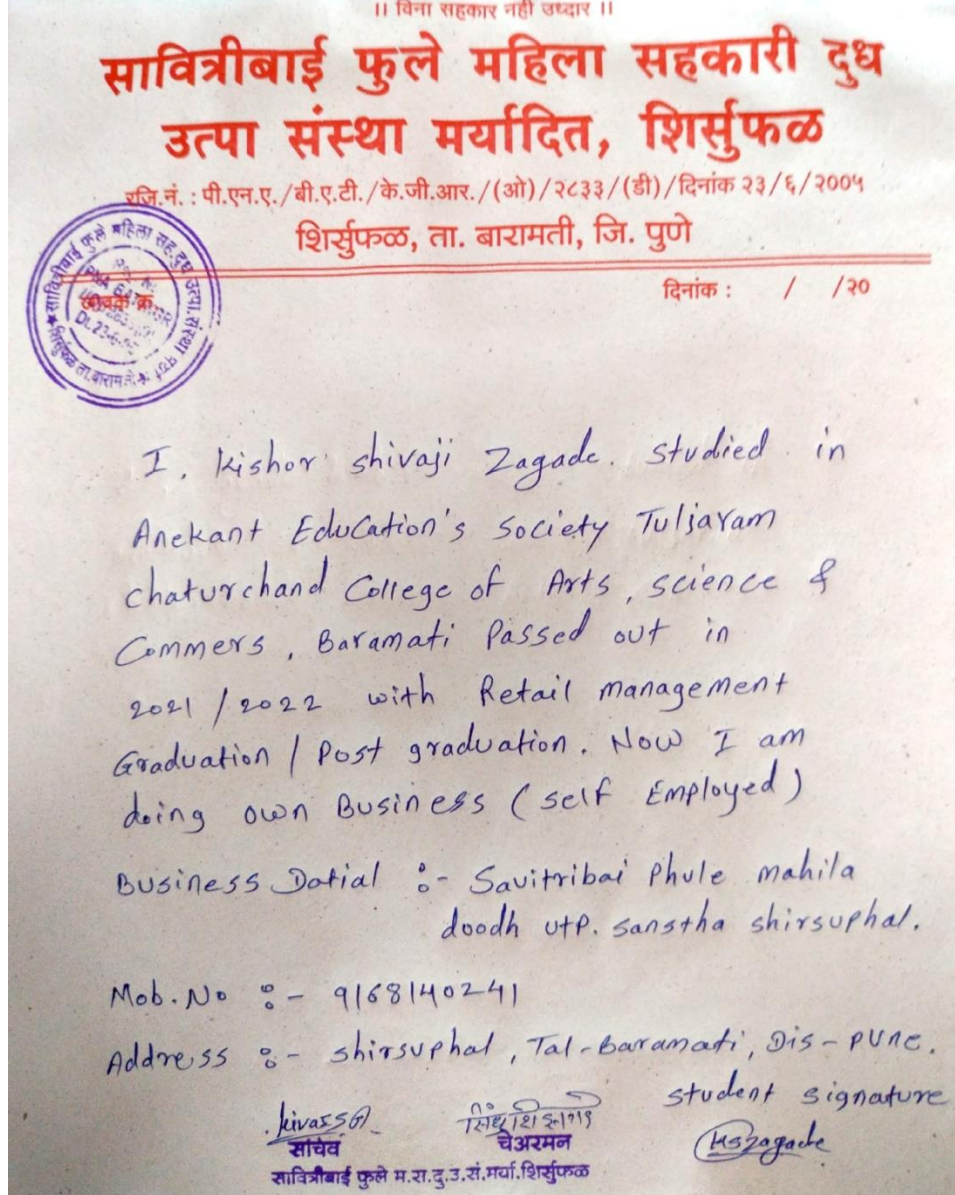 ।। विना सहकार नही उध्दार ।।
सावित्रीबाई फुले महिला सहकारी दुध
उत्पा संस्था मर्यादित, शिर्सुफळ
रजि.नं. : पी.एन.ए./बी.ए.टी./के.जी.आर./(ओ)/२८३३/(डी)/दिनांक २३/६/२००५
शिर्सुफळ, ता. बारामती, जि. पुणे
जावक क्र.
दिनांक : / /२०
I. Kishor shivaji Zagade. studied in
Anekant Education's Society Tuljaram
chaturchand College of Arts, science &
Commers, Baramati Passed out in
2021/2022 with Retail management
Graduation / Post graduation. Now I am
doing own Business (self Employed)
Business Datial :- Savitribai Phule mahila
doodh utp. sanstha shirsuphal.
Mob.No :- 9168140241
Address :- shirsuphal, Tal-Baramati, Dis-Pune.
student signature
सचिव
चेअरमन
HSZagade
सावित्रीबाई फुले म.स.दु.उ.सं.मर्या.शिर्सुफळ